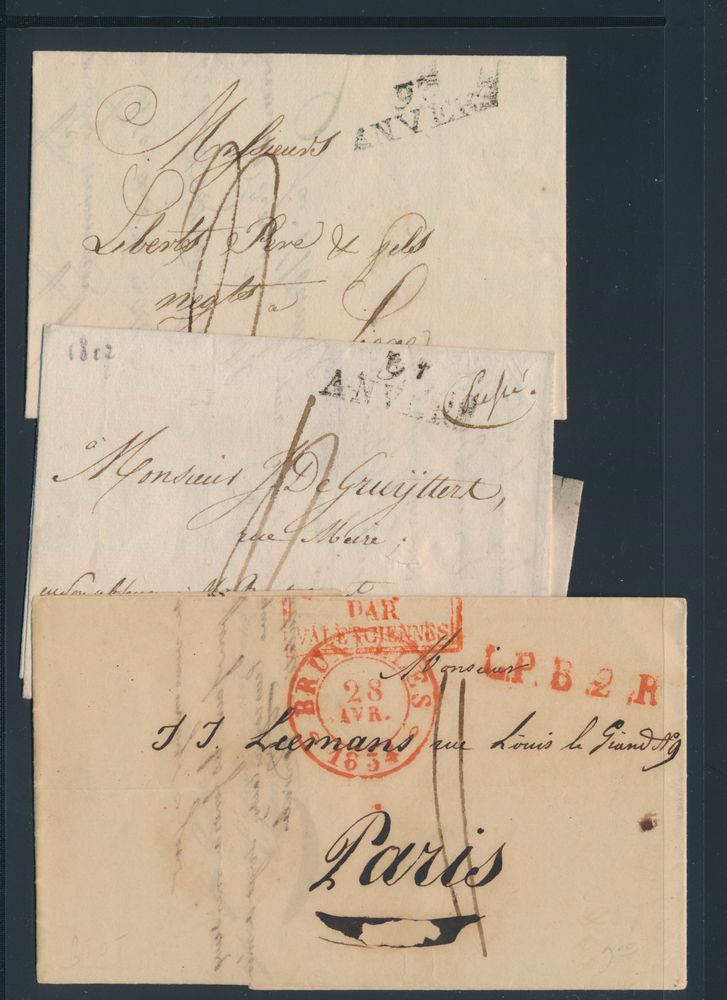 93
ANVERS
Messieurs
Liberts Pere & fils
negts à
1812
ANVERS
à Monsieur J. De Gruyttert,
rue Meire;
PAR
VALENCIENNES
BRUXELLES
28
AVR.
1834
L.P.B.2.R
Monsieur
J J. Leemans rue Louis le Grand No 9
Paris